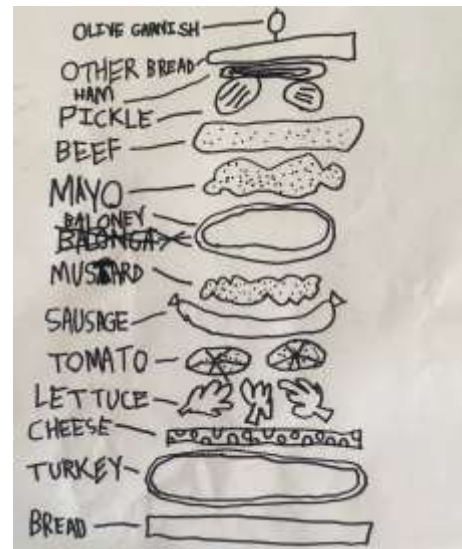 OLIVE GARNISH
OTHER BREAD
HAM
PICKLE
BEEF
MAYO
BALONEY
BALONGA
MUSTARD
SAUSAGE
TOMATO
LETTUCE
CHEESE
TURKEY
BREAD